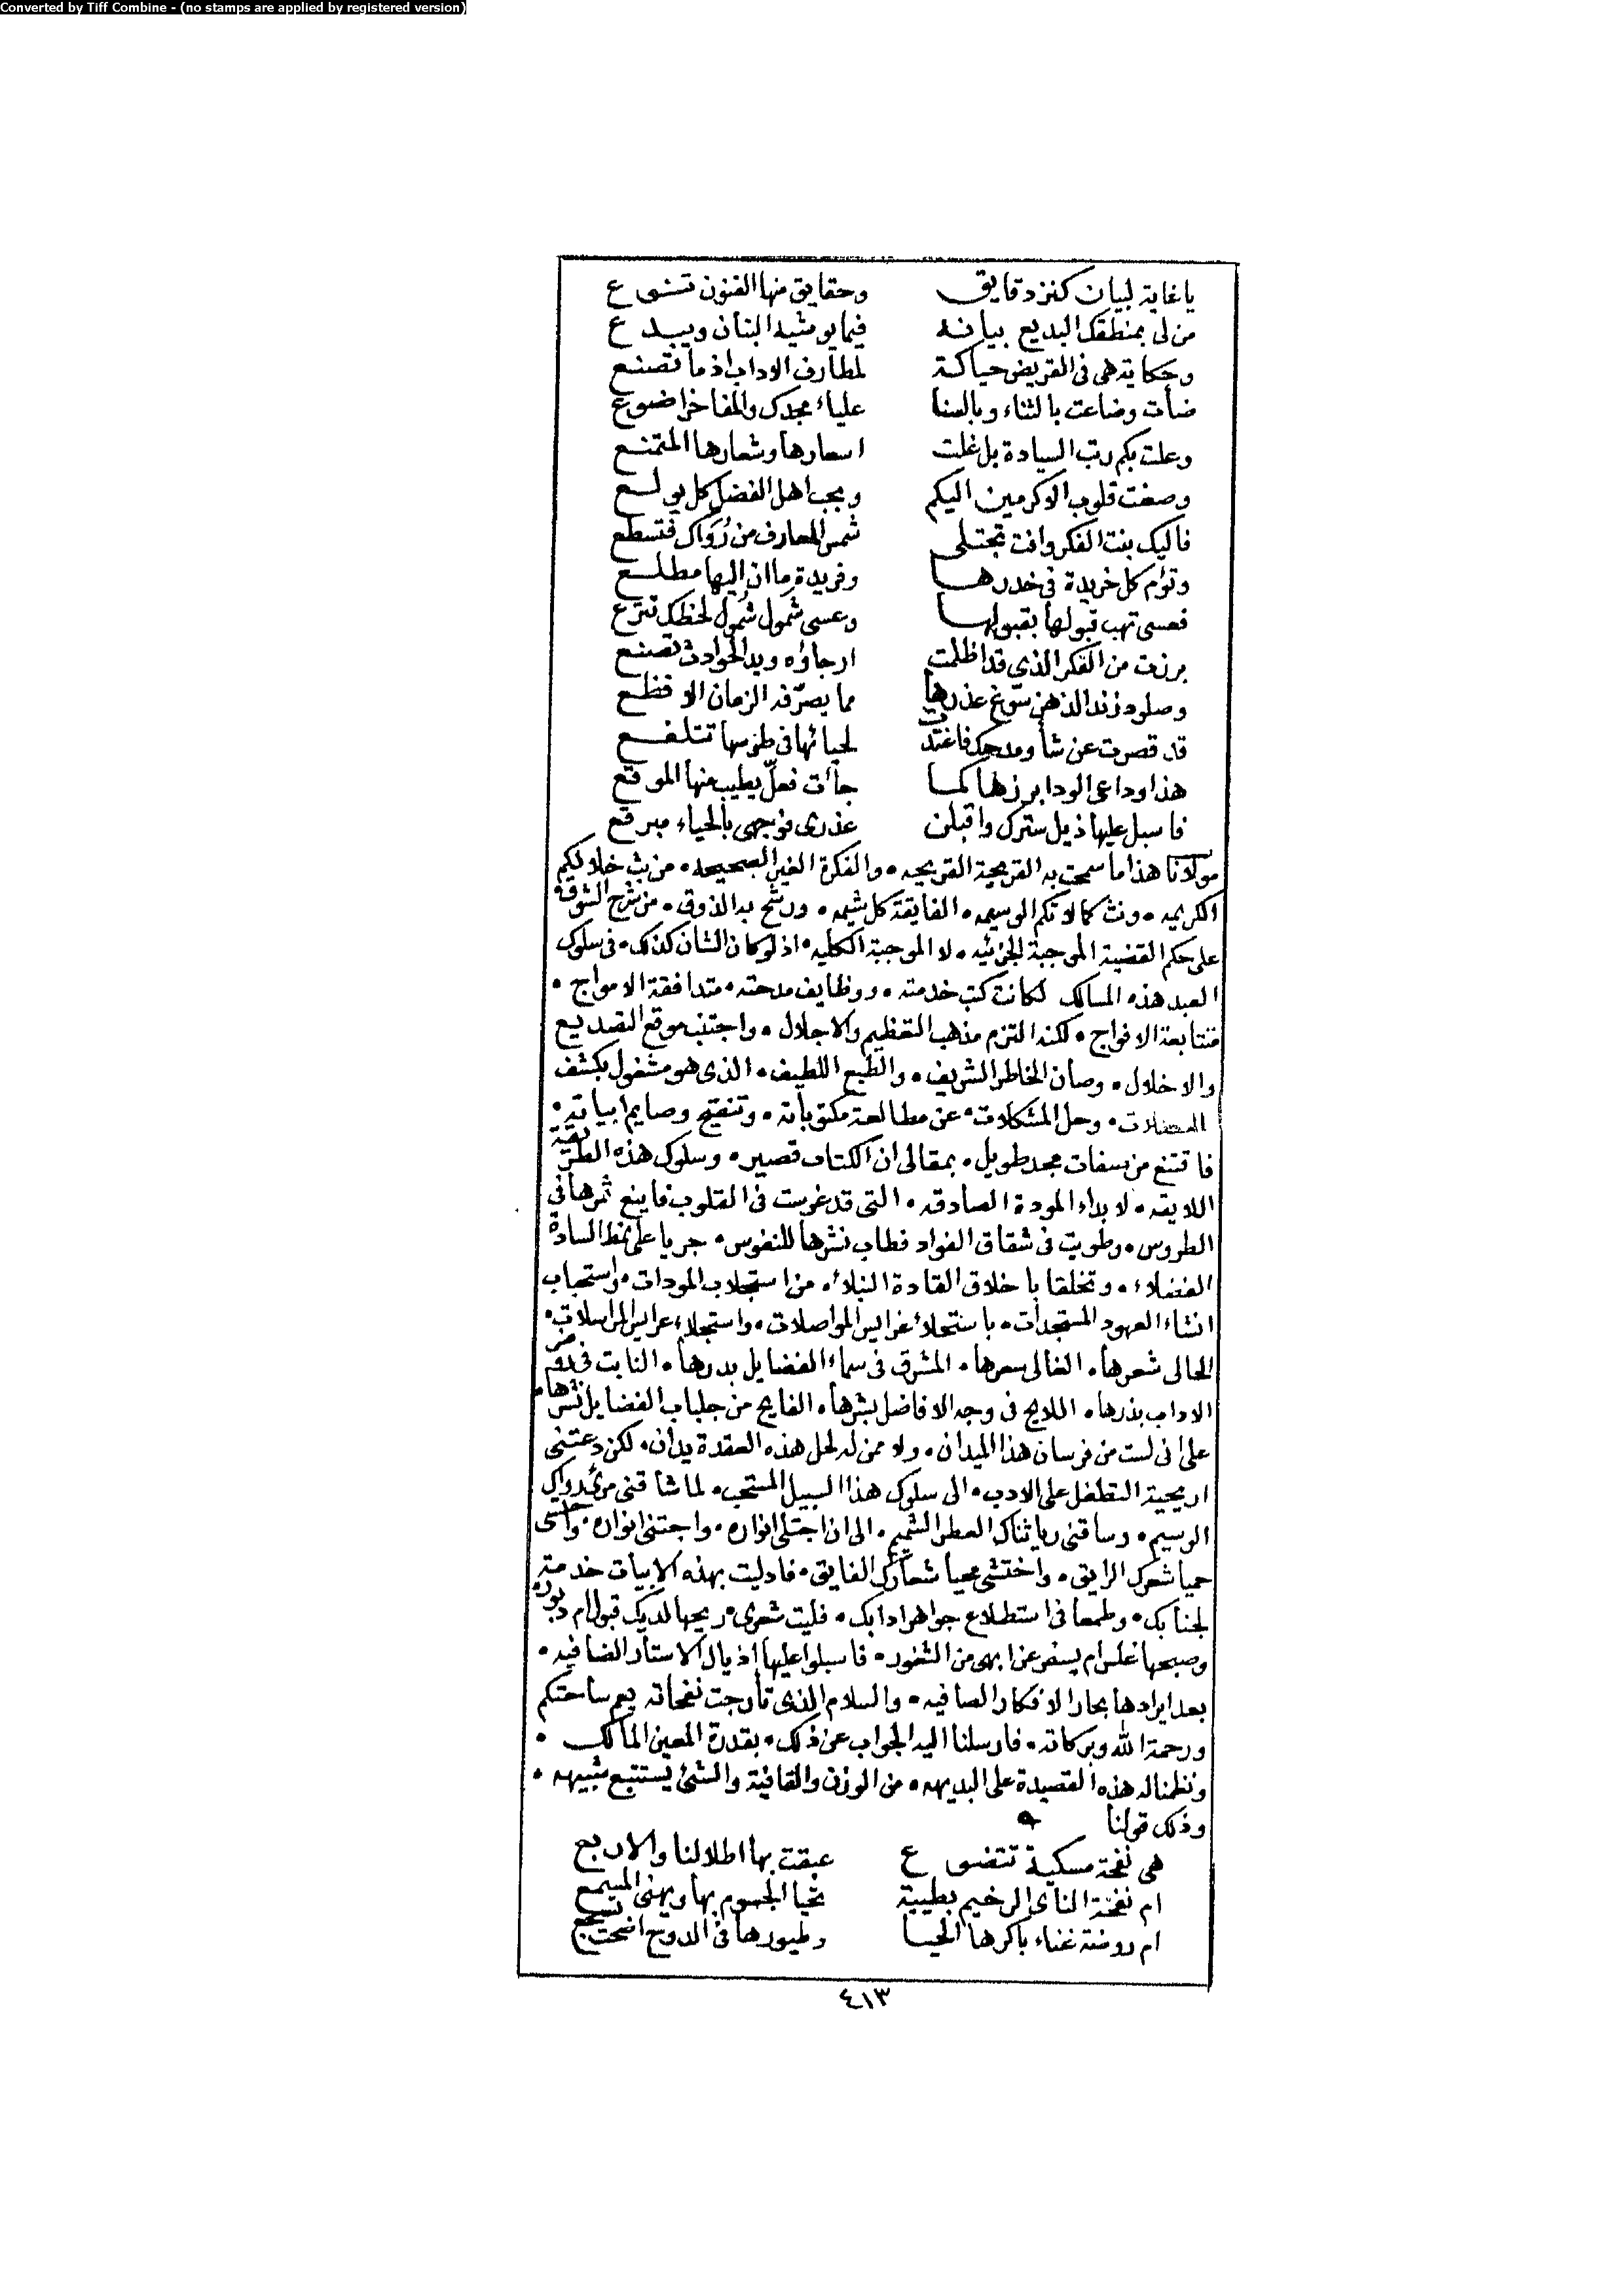 Converted by Tiff Combine - (no stamps are applied by registered version)
ياغاية لبيان كنز دقايق وحقايق منها الفنون تنوع
من لى بمنطقك البديع بيانه فيما يوشيه البنان ويبدع
وحكاية هى فى القريض حياكة لمطارف الاداب اذ ما تصنع
ضأت وضاعت بالثناء وبالسنا علياء مجدك والمفاخر اضوع
وعلت بكم رتب السيادة بل غلت اسعارها وشعارها المتمنع
وصغت قلوب الاكرمين اليكم وبحب اهل الفضل كل يولع
فاليك بنت الفكر وافت تجتلى شمس المعارف من رُوَاك فتسطع
وتؤم كل خريدة فى خدرها وفريدة ما ان اليها مطلع
فعسى تهب قبولها بقبولها وعسى شَمول شُمول لحظك تترع
برزت من الفكر الذى قد اظلمت ارجاؤه ويد الحوادث تصنع
وصلود زند الذهن سوّغ عذرها مما يصرّفه الزمان الافظع
قد قصرت عن شأو مدحك فاغتدت لحيائها فى طرسها تتلفع
هذا وداعى الود ابرزها كما جأت فعلّ يطيب منها الموقع
فاسبل عليها ذيل سترك واقبلن عذرى فوجهى بالحياء مبرقع
مولانا هذا ما سمحت به القريحة القريحه ٠ والفكرة الغير الصحيحه ٠ من بث خلالكم
الكريمه ٠ ونث كمالاتكم الوسيمه ٠ الفايقة كل شيمه ٠ ورشح به الذوق ٠ من شرح الشوق ٠
على حكم القضية الموجبة الجزئيه ٠ لا الموجبة الكليه ٠ اذ لو كان الشان كذلك ٠ فى سلوك
العبد هذه المسالك لكانت كتب خدمته ٠ ووظايف مدحته ٠ متدافقة الامواج ٠
متتابعة الافواج ٠ لكنه التزم مذهب التعظيم والاجلال ٠ واجتنب موقع التصديع
والاخلال ٠ وصان الخاطر الشريف ٠ والطبع اللطيف ٠ الذى هو مشغول بكشف
المعضلات ٠ وحل المشكلات ٠ عن مطالعة مكتوباته ٠ وتنقيح وصايم ابياته ٠
فاقتنع من صفات مجد طويل ٠ بمقالى ان الكتاب قصير ٠ وسلوك هذه الطريقة
اللايقه ٠ لابداء المودة الصادقه ٠ التى قد غرست فى القلوب فاينع ثمرها فى
الطروس ٠ وطويت فى شقاق الفواد فطاب نشرها للنفوس ٠ جريا على نمط السادة
الفضلاء ٠ وتخلقا باخلاق القادة النبلاء ٠ من استجلاب المودات ٠ واستحباب
انشاء العهود المستجدات ٠ باستحلاء غرايس المواصلات ٠ واستجلاء عرايس المراسلات ٠
الحالى شعرها ٠ الغالى سعرها ٠ المشرق فى سماء الفضايل بدرها ٠ النابت فى روض
الاداب بذرها ٠ اللايح فى وجه الافاضل بشرها ٠ الفايح من جلباب الفضايل نشرها ٠
على انى لست من فرسان هذا الميدان ٠ ولا ممن له لحل هذه العقدة يدان ٠ لكن دعتنى
اريحية التطفل على الادب ٠ الى سلوك هذا السبيل المستحب ٠ لما شاقنى مرئ رواك
الوسيم ٠ وساقنى ريا ثناك العطر الشميم ٠ الى ان اجتلى انواره ٠ واجتنى انواره ٠ واحتسى
حميا شعرك الرايق ٠ واختشى محيا شعارك الفايق ٠ فادليت بهذه الابيات خدمة
لجنابك ٠ وطمعا فى استطلاع جواهر ادابك ٠ فليت شعرى ريحها لديك قبول ام دبور ٠
وصبحها غلس ام يسفر عن ابهى من الثغور ٠ فاسبلوا عليها اذيال الاستار الضافيه ٠
بعد ايرادها بحار الافكار الصافيه ٠ والسلام الذى تأرجت نفحاته يعم ساحتكم
ورحمة الله وبركاته ٠ فارسلنا اليه الجواب عن ذلك ٠ بقدرة المعين المالك ٠
ونظمنا له هذه القصيدة على البديهه ٠ من الوزن والقافية والشئ يستتبع شبيهه ٠
وذلك قولنا
هى نفحة مسكية تتضوع عبقت بها اطلالنا والاربع
ام نغمة الناى الرخيم بطيبة تحيا الجسوم بها ويهنى المسمع
ام روضة غناء باكرها الحيا وطيورها فى الدوح اضحت تسجع
٤١٣